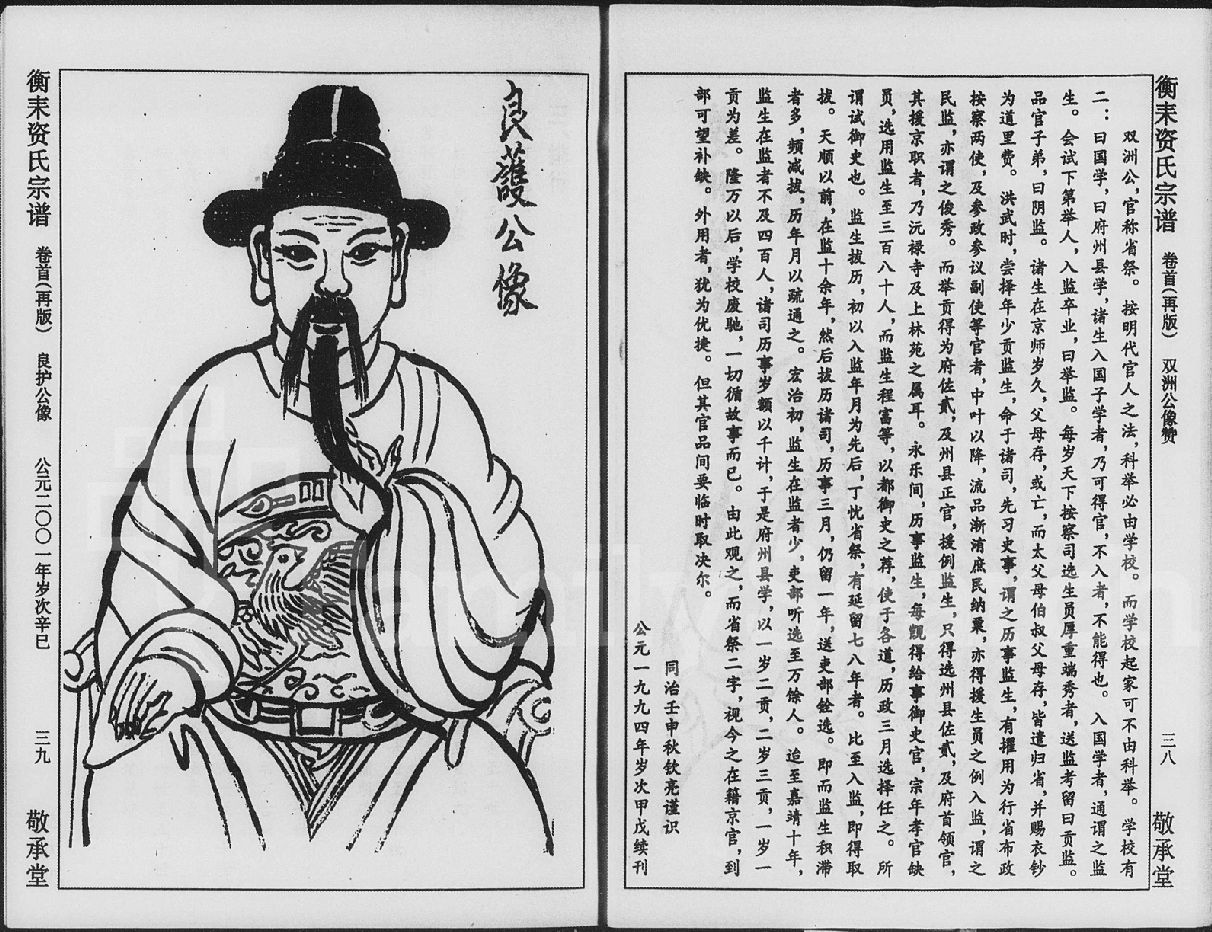 衡耒资氏宗谱 卷首(再版) 双洲公像赞 三八 敬承堂
双洲公,官称省祭。按明代官人之法,科举必由学校。而学校起家可不由科举。学校有
二:曰国学,曰府州县学,诸生入国子学者,乃可得官,不入者,不能得也。入国学者,通谓之监
生。会试下第举人,入监卒业,曰举监。每岁天下按察司选生员厚重端秀者,送监考留曰贡监。
品官子弟,曰阴监。诸生在京师岁久,父母存,或亡,而太父母伯叔父母存,皆遣归省,并赐衣钞
为道里费。洪武时,尝择年少贡监生,命于诸司,先习吏事,谓之历事监生,有擢用为行省布政
按察两使,及参政参议副使等官者,中叶以降,流品渐淆庶民纳粟,亦得援生员之例入监,谓之
民监,亦谓之俊秀。而举贡得为府佐贰,及州县正官,援例监生,只得选州县佐贰,及府首领官,
其援京职者,乃沅禄寺及上林苑之属耳。永乐间,历事监生,每觐得给事御史官,宗年孝官缺
员,选用监生至三百八十人,而监生程富等,以都御史之荐,使于各道,历政三月选择任之。所
谓试御史也。监生拔历,初以入监年月为先后,丁忧省祭,有延留七八年者。比至入监,即得取
拔。天顺以前,在监十余年,然后拔历诸司,历事三月,仍留一年,送吏部铨选。即而监生积滞
者多,频减拔,历年月以疏通之。宏治初,监生在监者少,吏部听选至万馀人。迨至嘉靖十年,
监生在监者不及四百人,诸司历事岁额以千计,于是府州县学,以一岁二贡,二岁三贡,一岁一
贡为差。隆万以后,学校废驰,一切循故事而已。由此观之,而省祭二字,视今之在籍京官,到
部可望补缺。外用者,犹为优捷。但其官品间要临时取决尔。
同治壬申秋钦亮谨识
公元一九九四年岁次甲戌续刊
良護公像
衡耒资氏宗谱 卷首(再版) 良护公像 公元二〇〇一年岁次辛巳 三九 敬承堂